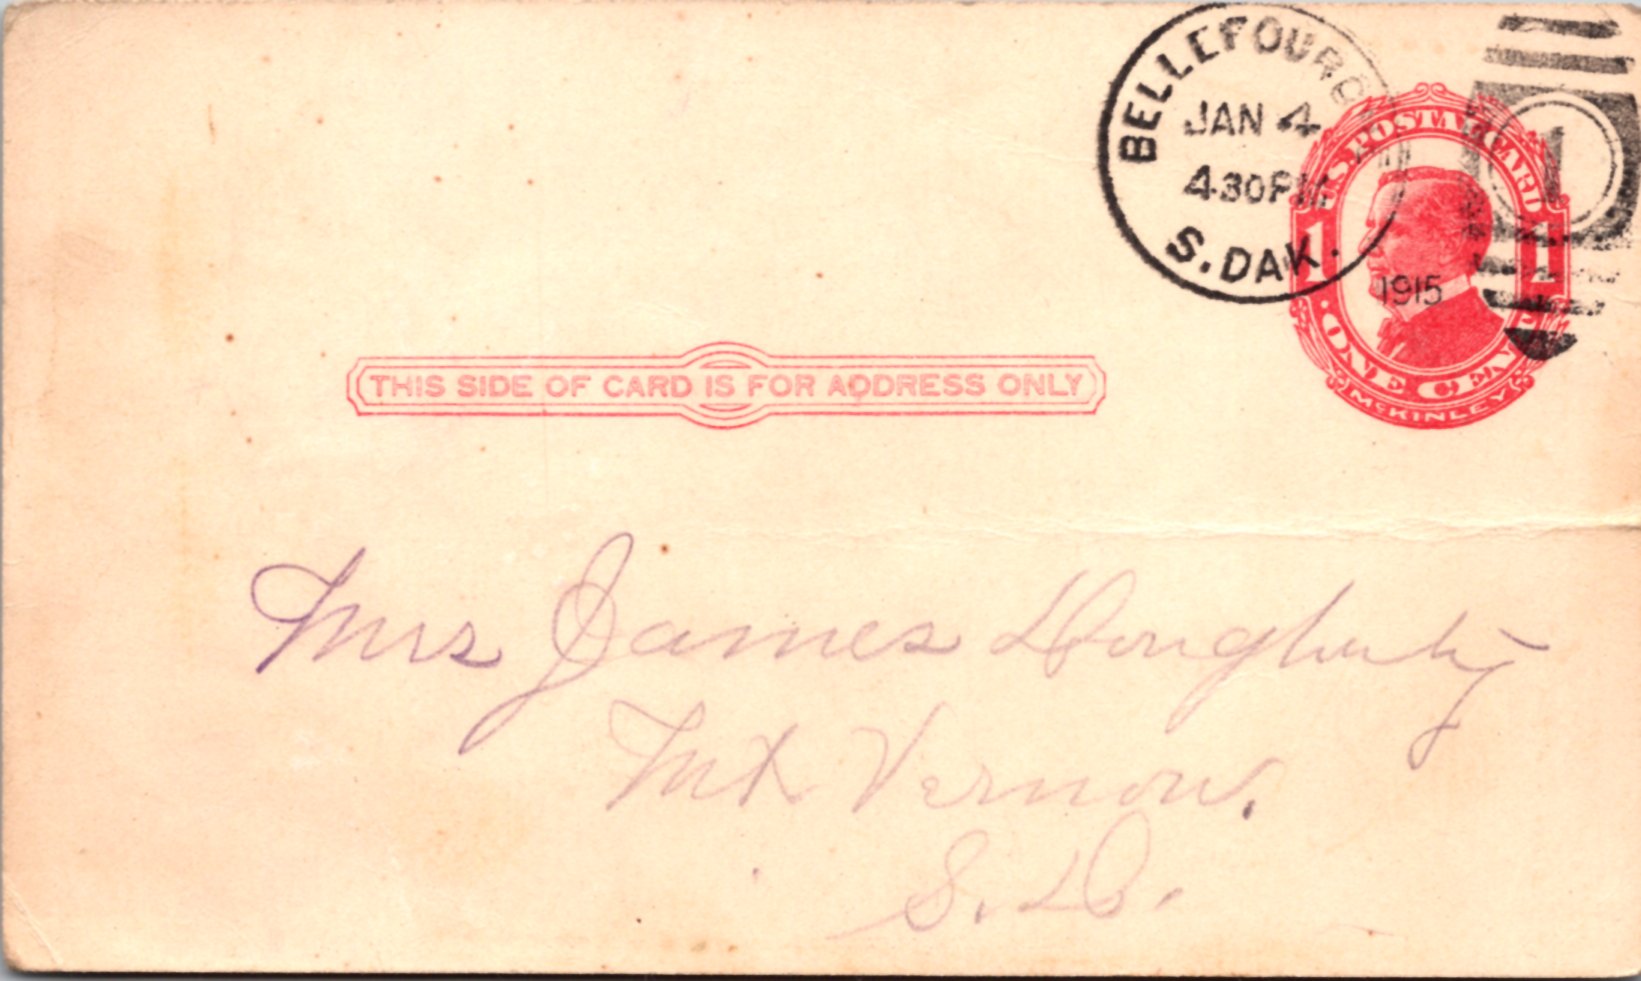 BELLEFOURCHE
JAN 4
4 30 PM
1915
S. DAK.
1
U.S. POSTAL CARD
1 1
ONE CENT
McKINLEY
THIS SIDE OF CARD IS FOR ADDRESS ONLY
Mrs James Dougherty
Mt Vernon.
S. D.